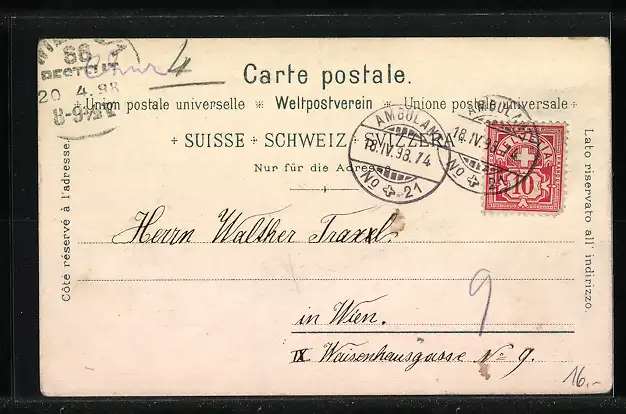 Carte postale.
Union postale universelle * Weltpostverein * Unione postale universale
+ SUISSE + SCHWEIZ + SVIZZERA
Nur für die Adresse
Côté réservé à l'adresse.
Lato riservato all' indirizzo.
WIEN
66
BESTELLT
20 4.98
4
AMBULANT
18.IV.98.74
No 21
AMBULANT
18.IV.98.74
No 21
HELVETIA
10
Herrn Walther Traxxl.
in Wien.
9
IX Waisenhausgasse No 9.
16.-